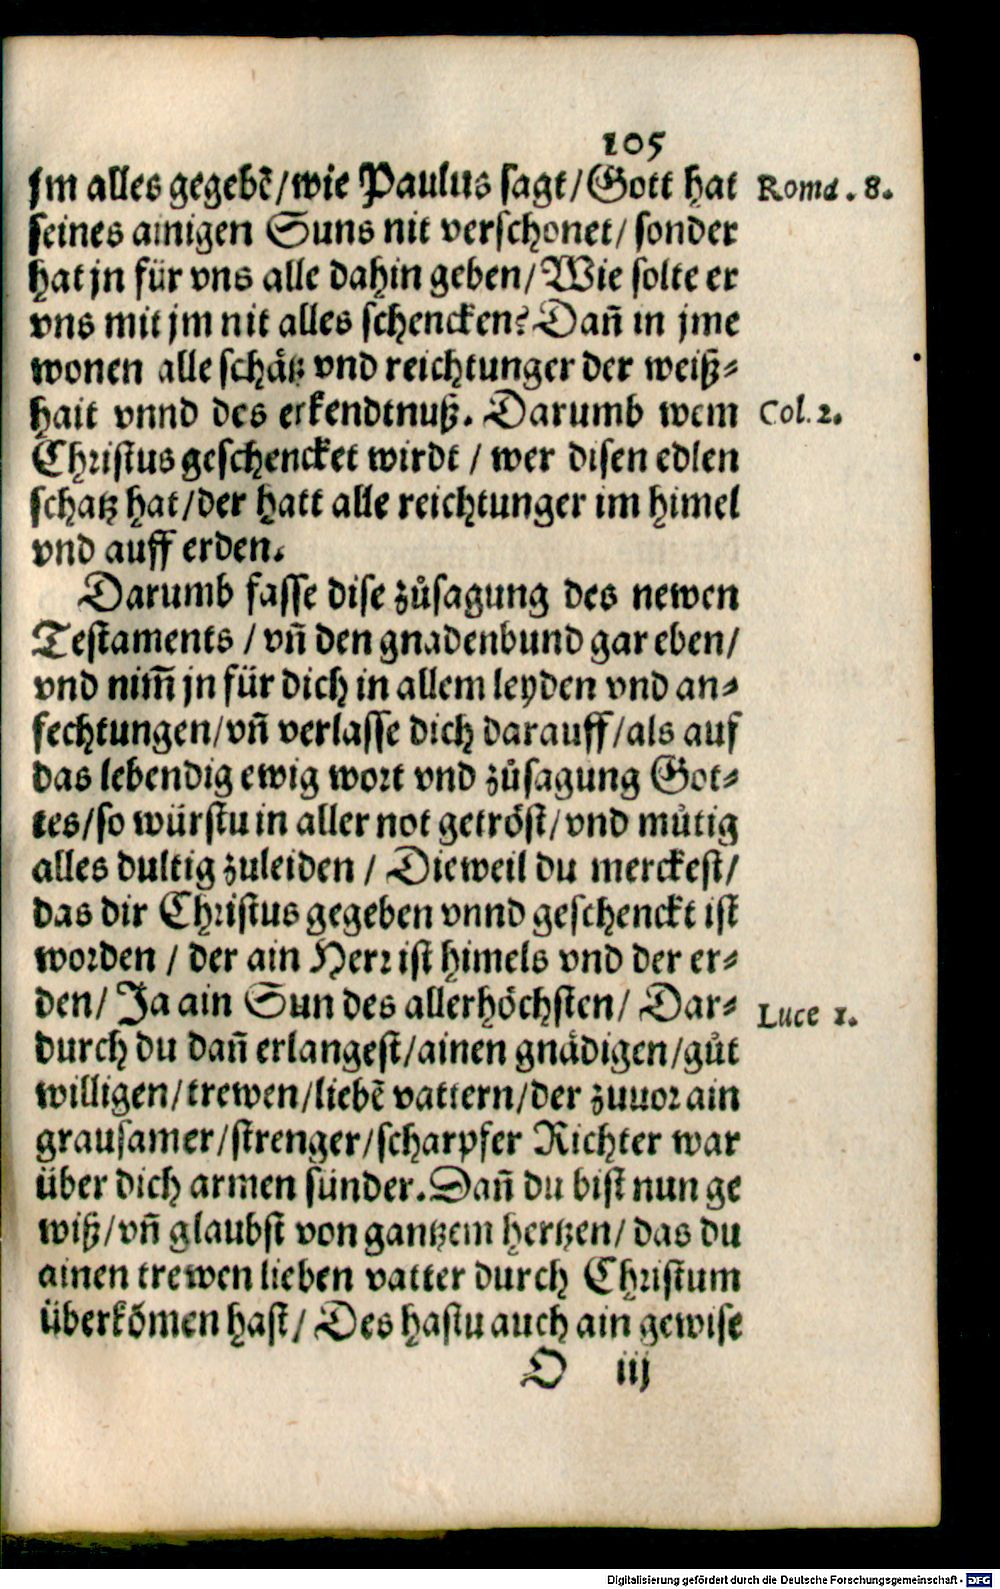 105
jm alles gegebẽ/wie Paulus sagt/Gott hat
Roma. 8.
seines ainigen Suns nit verschonet/ sonder
hat jn für vns alle dahin geben/Wie solte er
vns mit jm nit alles schencken? Dañ in jme
wonen alle schätz vnd reichtunger der weiß-
hait vnnd des erkendtnuß. Darumb wem
Col. 2.
Christus geschencket wirdt / wer disen edlen
schatz hat/der hatt alle reichtunger im himel
vnd auff erden.
Darumb fasse dise zůsagung des newen
Testaments / vñ den gnadenbund gar eben/
vnd nim̃ jn für dich in allem leyden vnd an-
fechtungen/vñ verlasse dich darauff/als auf
das lebendig ewig wort vnd zůsagung Got-
tes/so würstu in aller not getröst/vnd můtig
alles dultig zuleiden / Dieweil du merckest/
das dir Christus gegeben vnnd geschenckt ist
worden / der ain Herr ist himels vnd der er-
den/ Ja ain Sun des allerhöchsten/ Dar-
Luce 1.
durch du dañ erlangest/ainen gnädigen/gůt
willigen/trewen/liebẽ vattern/der zuuor ain
grausamer/strenger/scharpfer Richter war
über dich armen sünder. Dañ du bist nun ge
wiß/vñ glaubst von gantzem hertzen/ das du
ainen trewen lieben vatter durch Christum
überkõmen hast/ Des hastu auch ain gewise
O iij
Digitalisierung gefördert durch die Deutsche Forschungsgemeinschaft - DFG